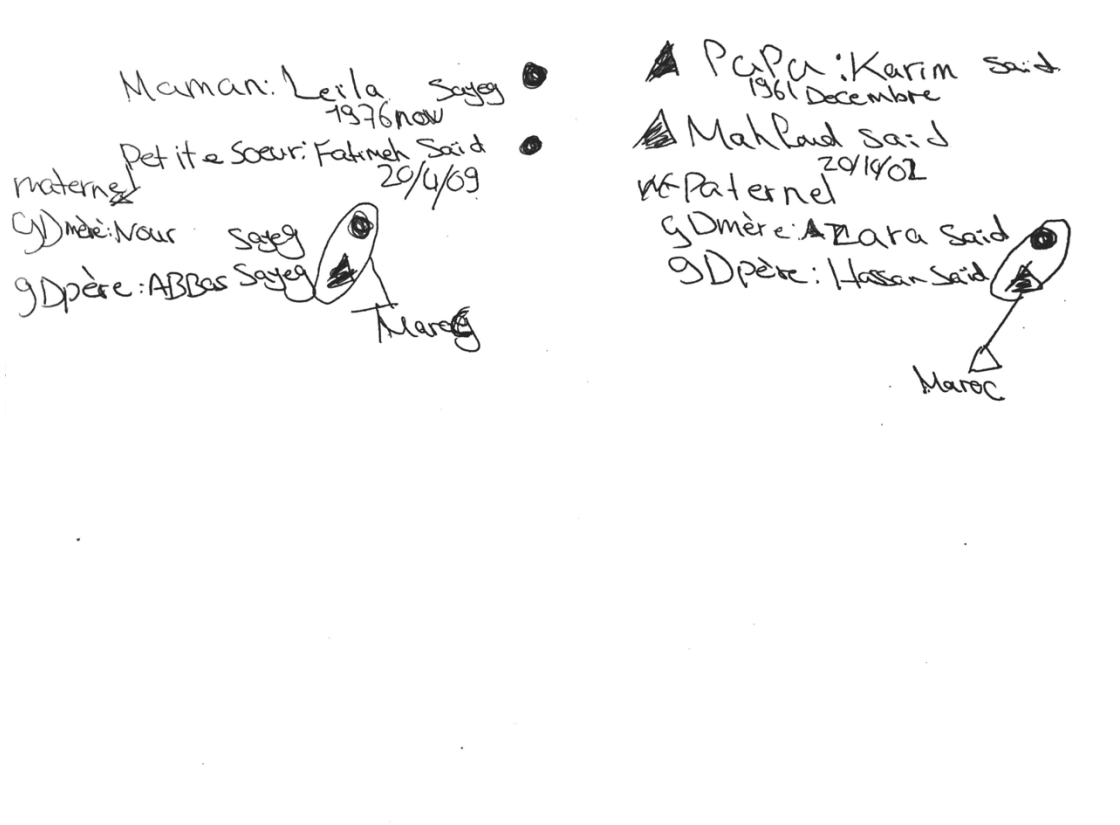 Maman: Leila Sayeg
1976 now
petite soeur: Fatimeh Saïd
20/4/09
maternel
gDmère: Nour Sayeg
gDpère: ABBas Sayeg
Maroc
PaPa: Karim Saïd
1961 Decembre
Saïd
Paternel
gDmère: Zara Saïd
gDpère: Hassan Saïd
Maroc